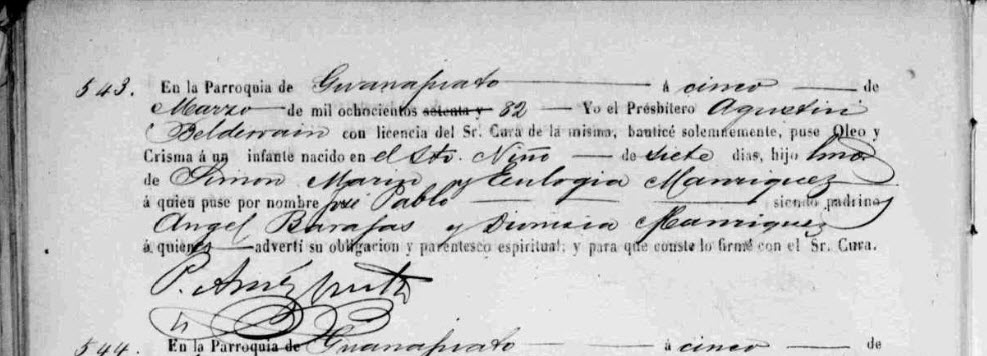 543. En la Parroquia de Guanajuato á cinco de
Marzo de mil ochocientos setenta y 82 Yo el Presbitero Agustin
Belderrain con licencia del Sr. Cura de la misma, bauticé solemnemente, puse Oleo y
Crisma á un infante nacido en el Sto. Niño de siete dias, hijo lmo
de Simon Marin y Eulogia Manriquez
á quien puse por nombre José Pablo siendo padrinos
Angel Barajas y Dionicia Manriquez
á quienes advertí su obligacion y parentesco espiritual; y para que conste lo firmé con el Sr. Cura.
544. En la Parroquia de Guanajuato á cinco de